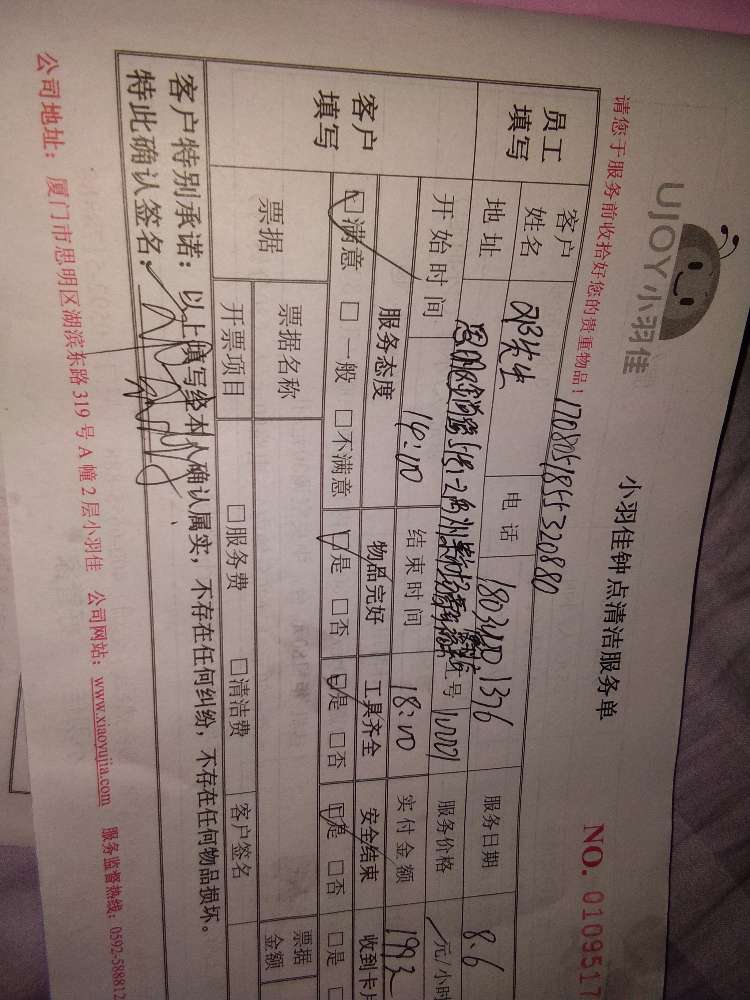 UJOY小羽佳
小羽佳钟点清洁服务单
NO. 0109517
请您于服务前收拾好您的贵重物品!
1708051855320880
员工填写 客户姓名 先生 电话 服务日期 8.6
地址 10001 服务价格 元/小时
开始时间 14:00 结束时间 18:00 实付金额 199元
客户填写 服务态度 物品完好 工具齐全 安全结束 收到卡
☑满意 □一般 □不满意 ☑是 □否 ☑是 □否 ☑是 □否 □是
票据 票据名称 票据金额
开票项目 □服务费 □清洁费 客户签名
客户特别承诺:以上填写经本人确认属实,不存在任何纠纷,不存在任何物品损坏。
特此确认签名:
公司地址:厦门市思明区湖滨东路319号A幢2层小羽佳 公司网站:www.xiaoyujia.com 服务监督热线:0592-588812